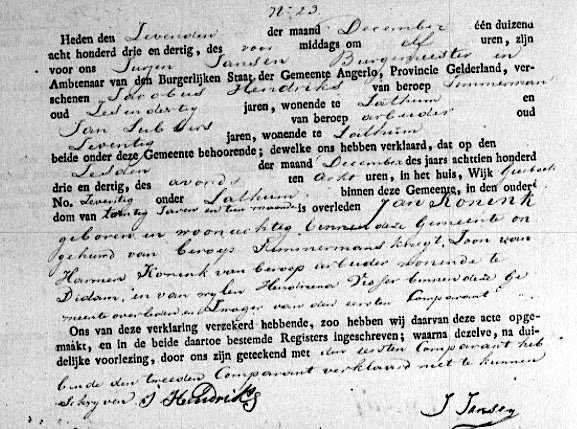 No. 23.
Heden den Zevenden der maand December één duizend
acht honderd drie en dertig, des voor middags om elf uren, zijn
voor ons Jurjen Jansen Burgemeester en
Ambtenaar van den Burgerlijken Staat der Gemeente Angerlo, Provincie Gelderland, ver-
schenen Jacobus Hendriks van beroep Timmerman
oud Zes en dertig jaren, wonende te Lathum en
Jan Lubbers van beroep arbeider oud
Zeventig jaren, wonende te Lathum
beide onder deze Gemeente behoorende; dewelke ons hebben verklaard, dat op den
Zesden der maand December des jaars achttien honderd
drie en dertig, des avonds ten acht uren, in het huis, Wijk
No. Zeventig onder Lathum binnen deze Gemeente, in den ouder-
dom van Twintig Jaren en tien maanden is overleden Jan Konink
geboren en woonachtig binnen deze Gemeente on
gehuwd van beroep Timmermans knegt, Zoon van
Harmen Konink van beroep arbeider wonende te
Didam, en van wylen Hendrina binnen deze Ge
meente overleden en Zwager van den eersten Comparant
Ons van deze verklaring verzekerd hebbende, zoo hebben wij daarvan deze acte opge-
maakt, en in de beide daartoe bestemde Registers ingeschreven; waarna dezelve, na dui-
delijke voorlezing, door ons zijn geteekend met den eersten Comparant heb
bende den tweeden Comparant verklaard niet te kunnen
schryven J Hendriks
J Jansen